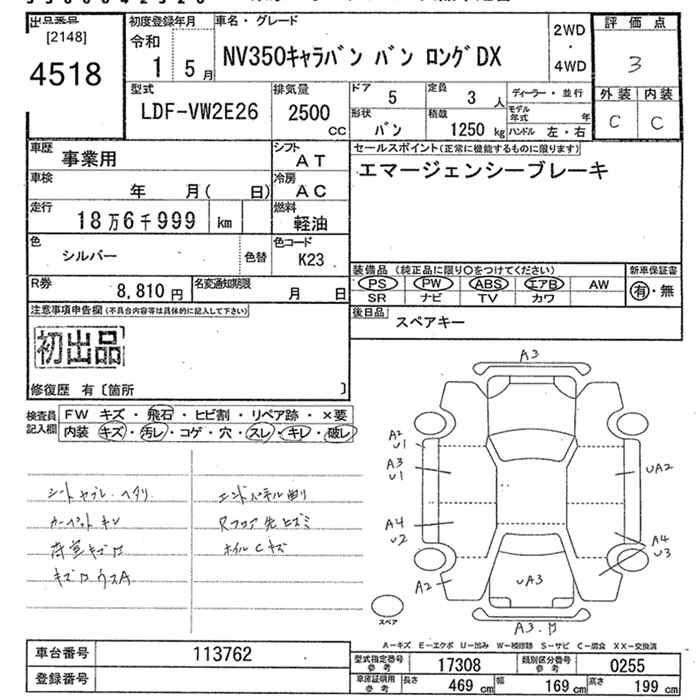 出品番号
[2148]
4518
初度登録年月
令和
1 5月
車名・グレード
NV350キャラバン バン ロングDX
2WD
・
4WD
評価点
3
外装 内装
C C
型式
LDF-VW2E26
排気量
2500
CC
ドア 5
定員 3人
形状 バン
積載 1250kg
ディーラー・並行
モデル年式 年
ハンドル 左・右
車歴 事業用
シフト AT
車検 年 月( 日)
冷房 AC
走行 18万6千999 km
燃料 軽油
色 シルバー 色替
色コード K23
R券 8,810円
名変通知期限 月 日
セールスポイント(正常に機能するものに限ります)
エマージェンシーブレーキ
装備品 (純正品に限り○をつけてください)
PS PW ABS エアB AW
SR ナビ TV カワ
新車保証書
有・無
後日品 スペアキー
注意事項申告欄(不具合内容等は具体的に記入して下さい)
初出品
修復歴 有〔箇所 〕
検査員記入欄
FW キズ・飛石・ヒビ割・リペア跡・×要
内装 キズ・汚レ・コゲ・穴・スレ・キレ・破レ
シートヤブレ・ヘタリ
カーペットキレ
荷室キズ凹
キズ凹ウスA
エンドパネル曲り
Rフロア先ヒズミ
ホイルCキズ
A3
A2
U1
A3
U1
UA2
A4
U2
A4
U3
A2
UA3
A3.凹
スペア
A－キズ E－エクボ U－凹み W－補修跡 S－サビ C－腐食 XX－交換済
車台番号 113762
登録番号
型式指定番号参考 17308
類別区分番号参考 0255
車庫証明用参考 長さ 469cm 幅 169cm 高さ 199cm